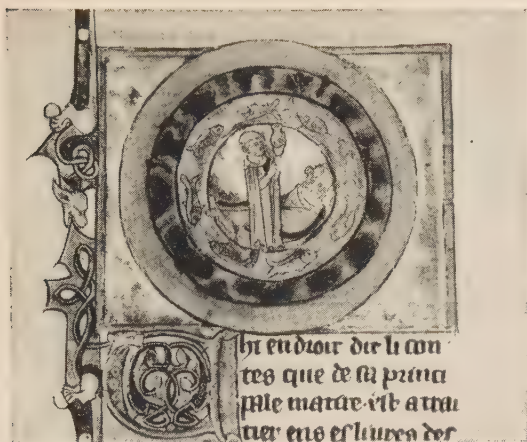 Chi endroit dit li con
tes que de sa princi
pale matire est a trai
tier ens es liures des